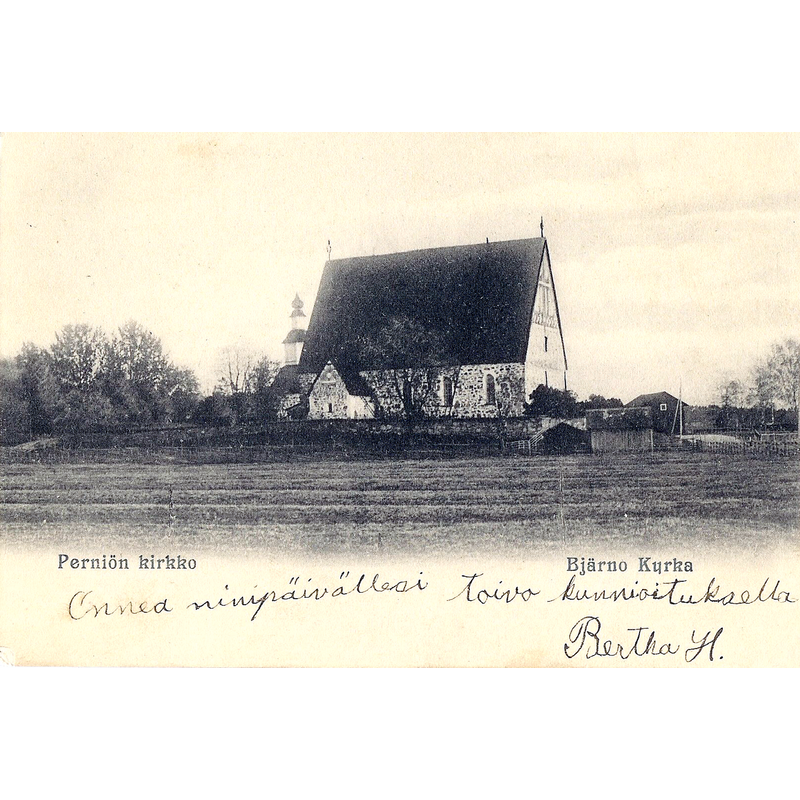 Perniön kirkko
Bjärno Kyrka
Onnea nimipäivällesi toivo kunnioituksella
Bertha H.